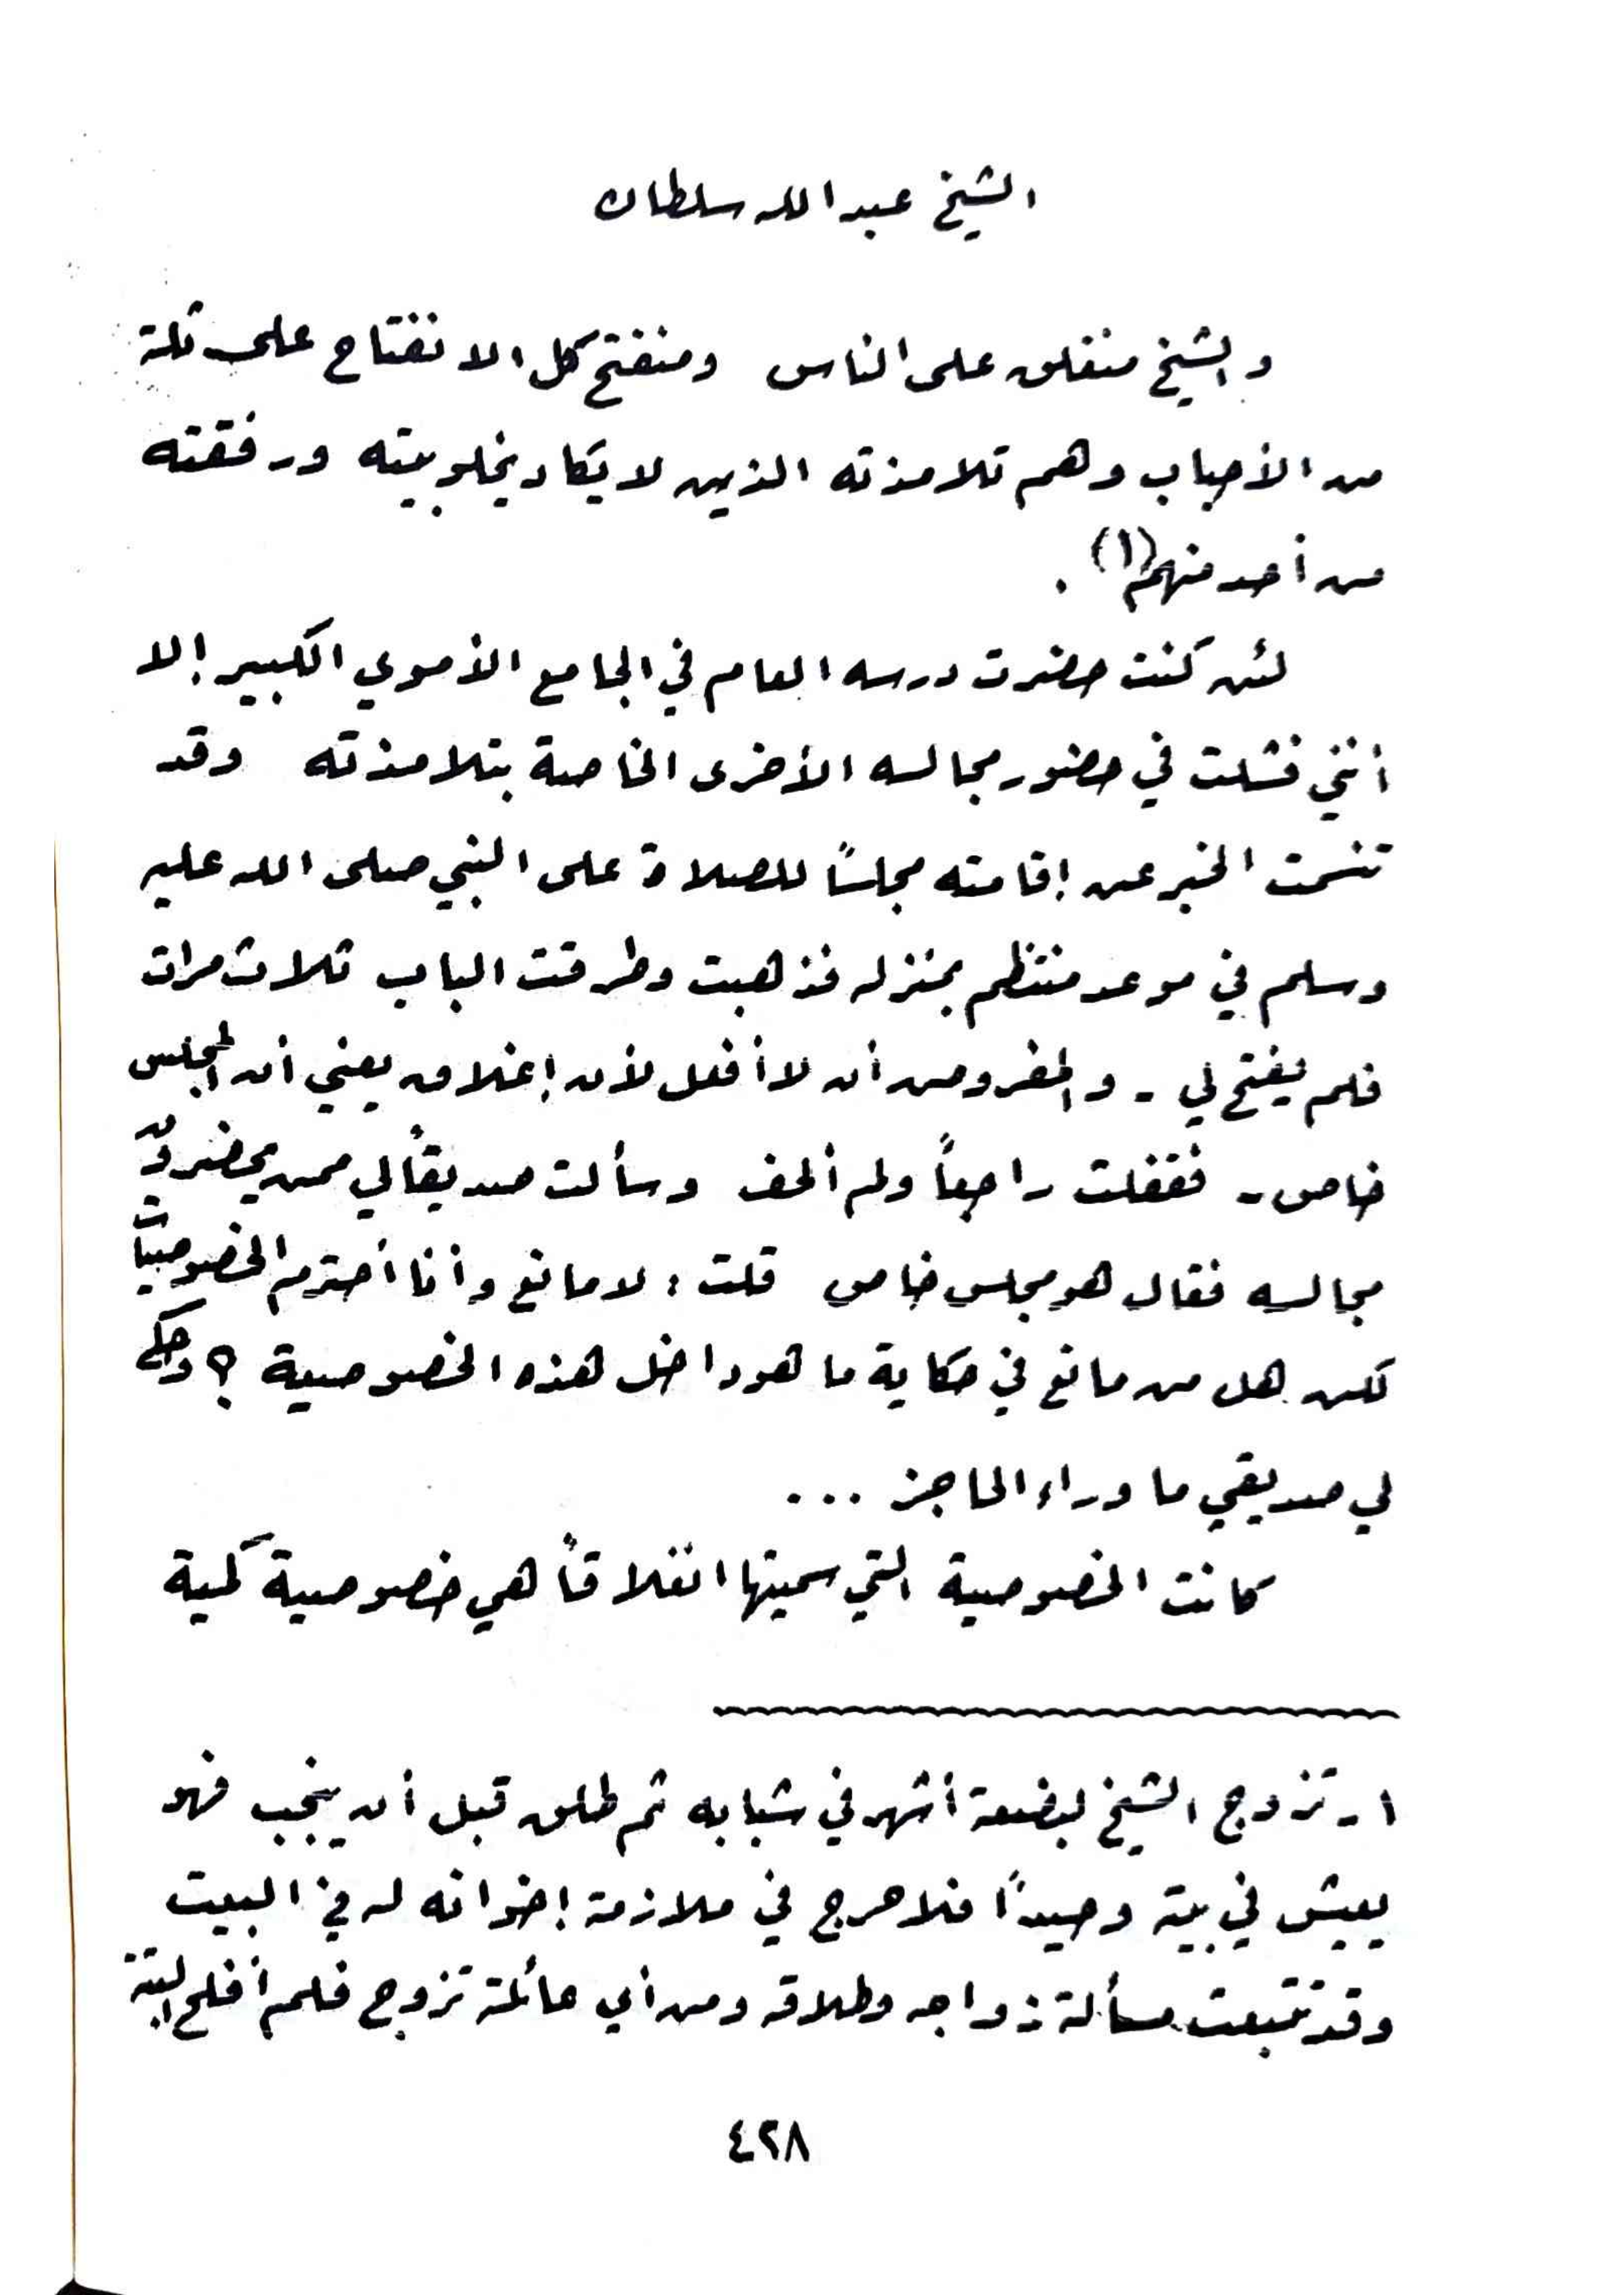 الشيخ عبد الله سلطان
والشيخ منغلق على الناس ومنفتح كل الانفتاح على ثلة
من الأحباب وهم تلامذته الذين لا يكاد يخلو بيته ورفقته
من أحد منهم (١) .
لئن كنت حضرت درسه العام في الجامع الأموي الكبير إلا
أنني فشلت في حضور مجالسه الأخرى الخاصة بتلامذته وقد
تنسمت الخبر عن إقامته مجلسًا للصلاة على النبي صلى الله عليه
وسلم في موعد منتظم بمنزله فذهبت وطرقت الباب ثلاث مرات
فلم يفتح لي - والمفروض أن لا أفعل لأن إغلاق يعني أن المجلس
خاص - فقفلت راجعاً ولم ألحف وسألت صديقاً لي ممن يحضرون
مجالسه فقال هو مجلس خاص قلت : لا مانع وأنا أحترم الخصوصيات
لكن هل من مانع في حكاية ما هو داخل هذه الخصوصية ؟ وحكى
لي صديقي ما وراء الحاجز ...
كانت الخصوصية التي سميتها انغلاقاً هي خصوصية كمية
١ - تزوج الشيخ لبضعة أشهر في شبابه ثم طلق قبل أن ينجب فهو
يعيش في بيته وحيداً فلا حرج في ملازمة إخوانه له في البيت
وقد تتبعت مسألة زواجه وطلاقه ومن أي عائلة تزوج فلم أفلح البتة
٤٢٨